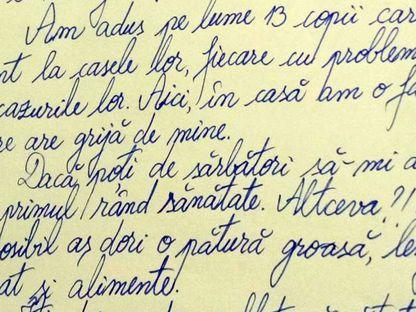 Am adus pe lume 13 copii car
nt la casele lor, fiecare cu problem
cazurile lor. Aici, în casă am o fa
re are grijă de mine.
Dacă poți de sărbători să-mi a
primul rând sănătate. Altceva?!
osibil aș dori o pătură groasă, le
at și alimente.